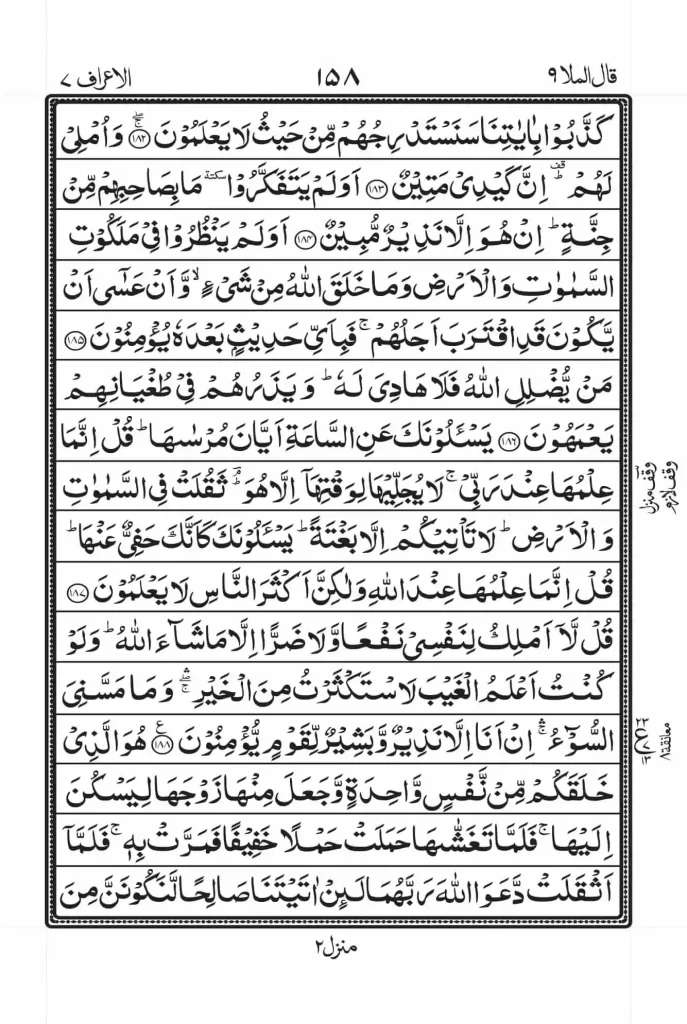 قال الملا ۹ ۱۵۸ الاعراف ۷
كَذَّبُوۡا بِاٰيٰتِنَا سَنَسۡتَدۡرِجُهُمۡ مِّنۡ حَيۡثُ لَا يَعۡلَمُوۡنَ ۚۖ‏ ﴿۱۸۲﴾ وَاُمۡلِىۡ
لَهُمۡ ؕ اِنَّ كَيۡدِىۡ مَتِيۡنٌ ﴿۱۸۳﴾ اَوَلَمۡ يَتَفَكَّرُوۡا سكتة مَا بِصَاحِبِهِمۡ مِّنۡ
جِنَّةٍ ؕ اِنۡ هُوَ اِلَّا نَذِيۡرٌ مُّبِيۡنٌ ﴿۱۸۴﴾ اَوَلَمۡ يَنۡظُرُوۡا فِىۡ مَلَكُوۡتِ
السَّمٰوٰتِ وَالۡاَرۡضِ وَمَا خَلَقَ اللّٰهُ مِنۡ شَىۡءٍ ۙ وَّاَنۡ عَسٰٓى اَنۡ
يَّكُوۡنَ قَدِ اقۡتَرَبَ اَجَلُهُمۡ ۚ فَبِاَىِّ حَدِيۡثٍۢ بَعۡدَهٗ يُؤۡمِنُوۡنَ ﴿۱۸۵﴾
مَنۡ يُّضۡلِلِ اللّٰهُ فَلَا هَادِىَ لَهٗ ؕ وَ يَذَرُهُمۡ فِىۡ طُغۡيَانِهِمۡ
يَعۡمَهُوۡنَ ﴿۱۸۶﴾ يَسۡـَٔلُوۡنَكَ عَنِ السَّاعَةِ اَيَّانَ مُرۡسٰٮهَا ؕ قُلۡ اِنَّمَا
عِلۡمُهَا عِنۡدَ رَبِّىۡ ۚ لَا يُجَلِّيۡهَا لِوَقۡتِهَاۤ اِلَّا هُوَ ۘؕ ثَقُلَتۡ فِى السَّمٰوٰتِ
وَالۡاَرۡضِ ؕ لَا تَاۡتِيۡكُمۡ اِلَّا بَغۡتَةً ؕ يَسۡـَٔلُوۡنَكَ كَاَنَّكَ حَفِىٌّ عَنۡهَا ؕ
قُلۡ اِنَّمَا عِلۡمُهَا عِنۡدَ اللّٰهِ وَلٰكِنَّ اَكۡثَرَ النَّاسِ لَا يَعۡلَمُوۡنَ ﴿۱۸۷﴾
قُلْ لَّاۤ اَمۡلِكُ لِنَفۡسِىۡ نَفۡعًا وَّلَا ضَرًّا اِلَّا مَا شَآءَ اللّٰهُ ؕ وَلَوۡ
كُنۡتُ اَعۡلَمُ الۡغَيۡبَ لَاسۡتَكۡثَرۡتُ مِنَ الۡخَيۡرِ ۛۚ وَمَا مَسَّنِىَ
السُّوۡٓءُ ۛۚ اِنۡ اَنَا اِلَّا نَذِيۡرٌ وَّبَشِيۡرٌ لِّقَوۡمٍ يُّؤۡمِنُوۡنَ ع ﴿۱۸۸﴾ هُوَ الَّذِىۡ
خَلَقَكُمۡ مِّنۡ نَّفۡسٍ وَّاحِدَةٍ وَّجَعَلَ مِنۡهَا زَوۡجَهَا لِيَسۡكُنَ
اِلَيۡهَا ۚ فَلَمَّا تَغَشّٰٮهَا حَمَلَتۡ حَمۡلًا خَفِيۡفًا فَمَرَّتۡ بِهٖ ۚ فَلَمَّاۤ
اَثۡقَلَتۡ دَّعَوَا اللّٰهَ رَبَّهُمَا لَـئِنۡ اٰتَيۡتَنَا صَالِحًا لَّنَكُوۡنَنَّ مِنَ
وقف منزل
وقف لازم
معانقة ۸
منزل ۲